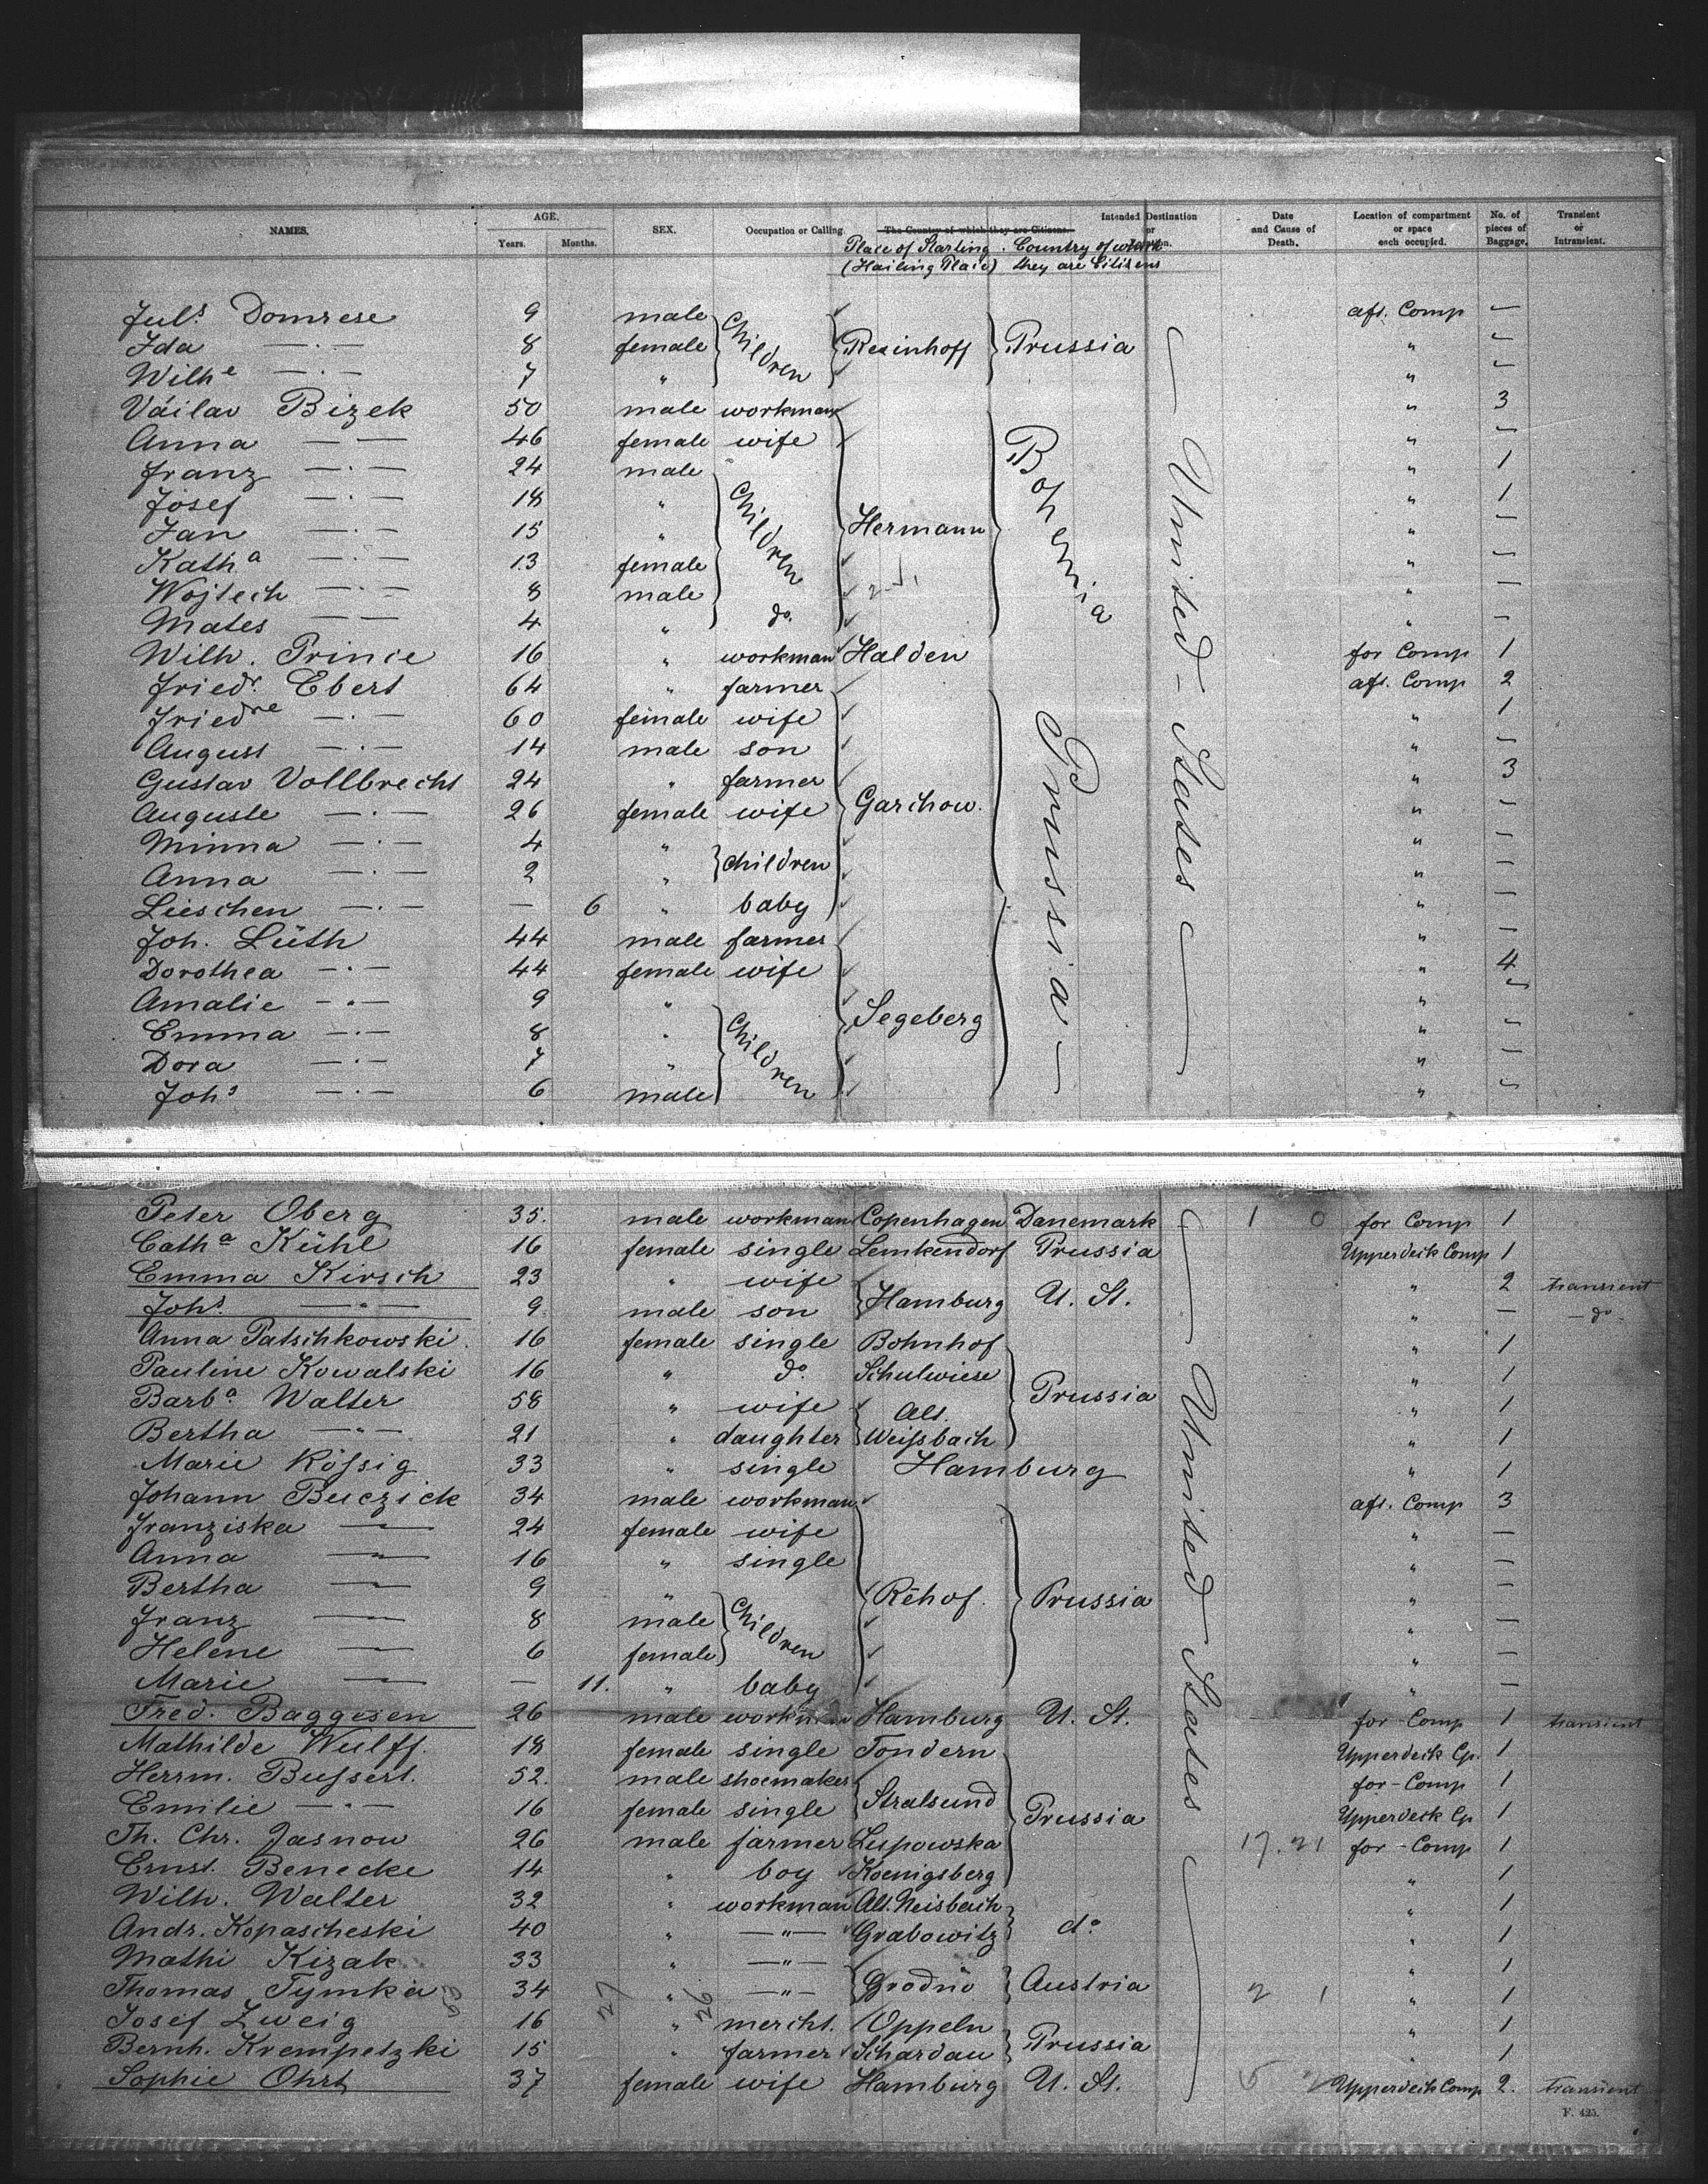 NAMES. AGE. Years. Months. SEX. Occupation or Calling. The Country of which they are Citizens. Intended Destination or Date and Cause of Death. Location of compartment or space each occupied. No. of pieces of Baggage. Transient or Intransient.
Place of Starting. Country of which
(Hailing Place) they are Citizens
Juls. Domrese 9 male Children aft. Comp —
Ida —·— 8 female Resinhoff Prussia " —
Wilhe —·— 7 " " —
Váilav Bizek 50 male workman " 3
Anna —— 46 female wife " —
Franz —·— 24 male Children Bohemia " 1
Josef —·— 18 " " 1
Jan —·— 15 " Hermann " —
Katha —·— 13 female " —
Wojtech —·— 8 male " —
Mates —— 4 " do. " —
Wilh. Prinie 16 " workman Halden for Comp 1
Friedr. Ebert 64 " farmer aft. Comp 2
Friedre —·— 60 female wife " 1
August —·— 14 male son Prussia United States " —
Gustav Vollbrecht 24 " farmer " 3
Auguste —·— 26 female wife Garchow. " —
Minna —·— 4 " children " —
Anna —·— 2 " " —
Lieschen —·— — 6 " baby " —
Joh. Lüth 44 male farmer " —
Dorothea —·— 44 female wife " 4
Amalie —·— 9 " Children Segeberg " —
Emma —·— 8 " " —
Dora —·— 7 " " —
Johs —·— 6 male " —
Peter Oberg 35. male workman Copenhagen Danemark 1 0 for Comp 1
Catha Kühl 16 female single Lemkendorf Prussia Upperdeck Comp 1
Emma Kirsch 23 " wife Hamburg U. St. " 2 transient
Johs. —"— 9 male son " — —do—
Anna Patschkowski. 16 female single Bohnhof " 1
Pauline Kowalski 16 " do. Schulwiese Prussia " 1
Barba. Walter 58 " wife Alt. " 1
Bertha —"— 21 " daughter Weißbach " 1
Marie Rößig 33 " single Hamburg " 1
Johann Buczick 34 male workman aft. Comp 3
Franziska —"— 24 female wife " —
Anna —"— 16 " single United States " —
Bertha —"— 9 " Children Rehof. Prussia " —
Franz —"— 8 male " —
Helene —"— 6 female " —
Marie —"— — 11. " baby " —
Fred. Baggesen 26 male workman Hamburg U. St. for Comp 1 transient
Mathilde Wulff. 18 female single Tondern Upperdeck Cp. 1
Herrm. Bußert. 52. male shoemaker Stralsund Prussia for-Comp 1
Emilie —"— 16 female single Upperdeck Cp 1
Th. Chr. Jasnow 26 male farmer Lupowska 17. 21 for-Comp 1
Ernst. Benecke 14 " boy Koenigsberg " 1
Wilh. Walter 32 " workman Alt. Weisbach do " 1
Andr. Kopascheski 40 " —"— Grabowitz " 1
Mathi Kizak 33 " —"— Grodno Austria " 1
Thomas Tymka 34 27 " 26 —"— 2 1 " 1
Josef Zweig 16 " mercht. Oppeln Prussia " 1
Bernh. Krempetzki 15 " farmer Schardau " 1
Sophie Ohrt 37 female wife Hamburg U. St. Upperdeck Comp 2. transient
F. 425.